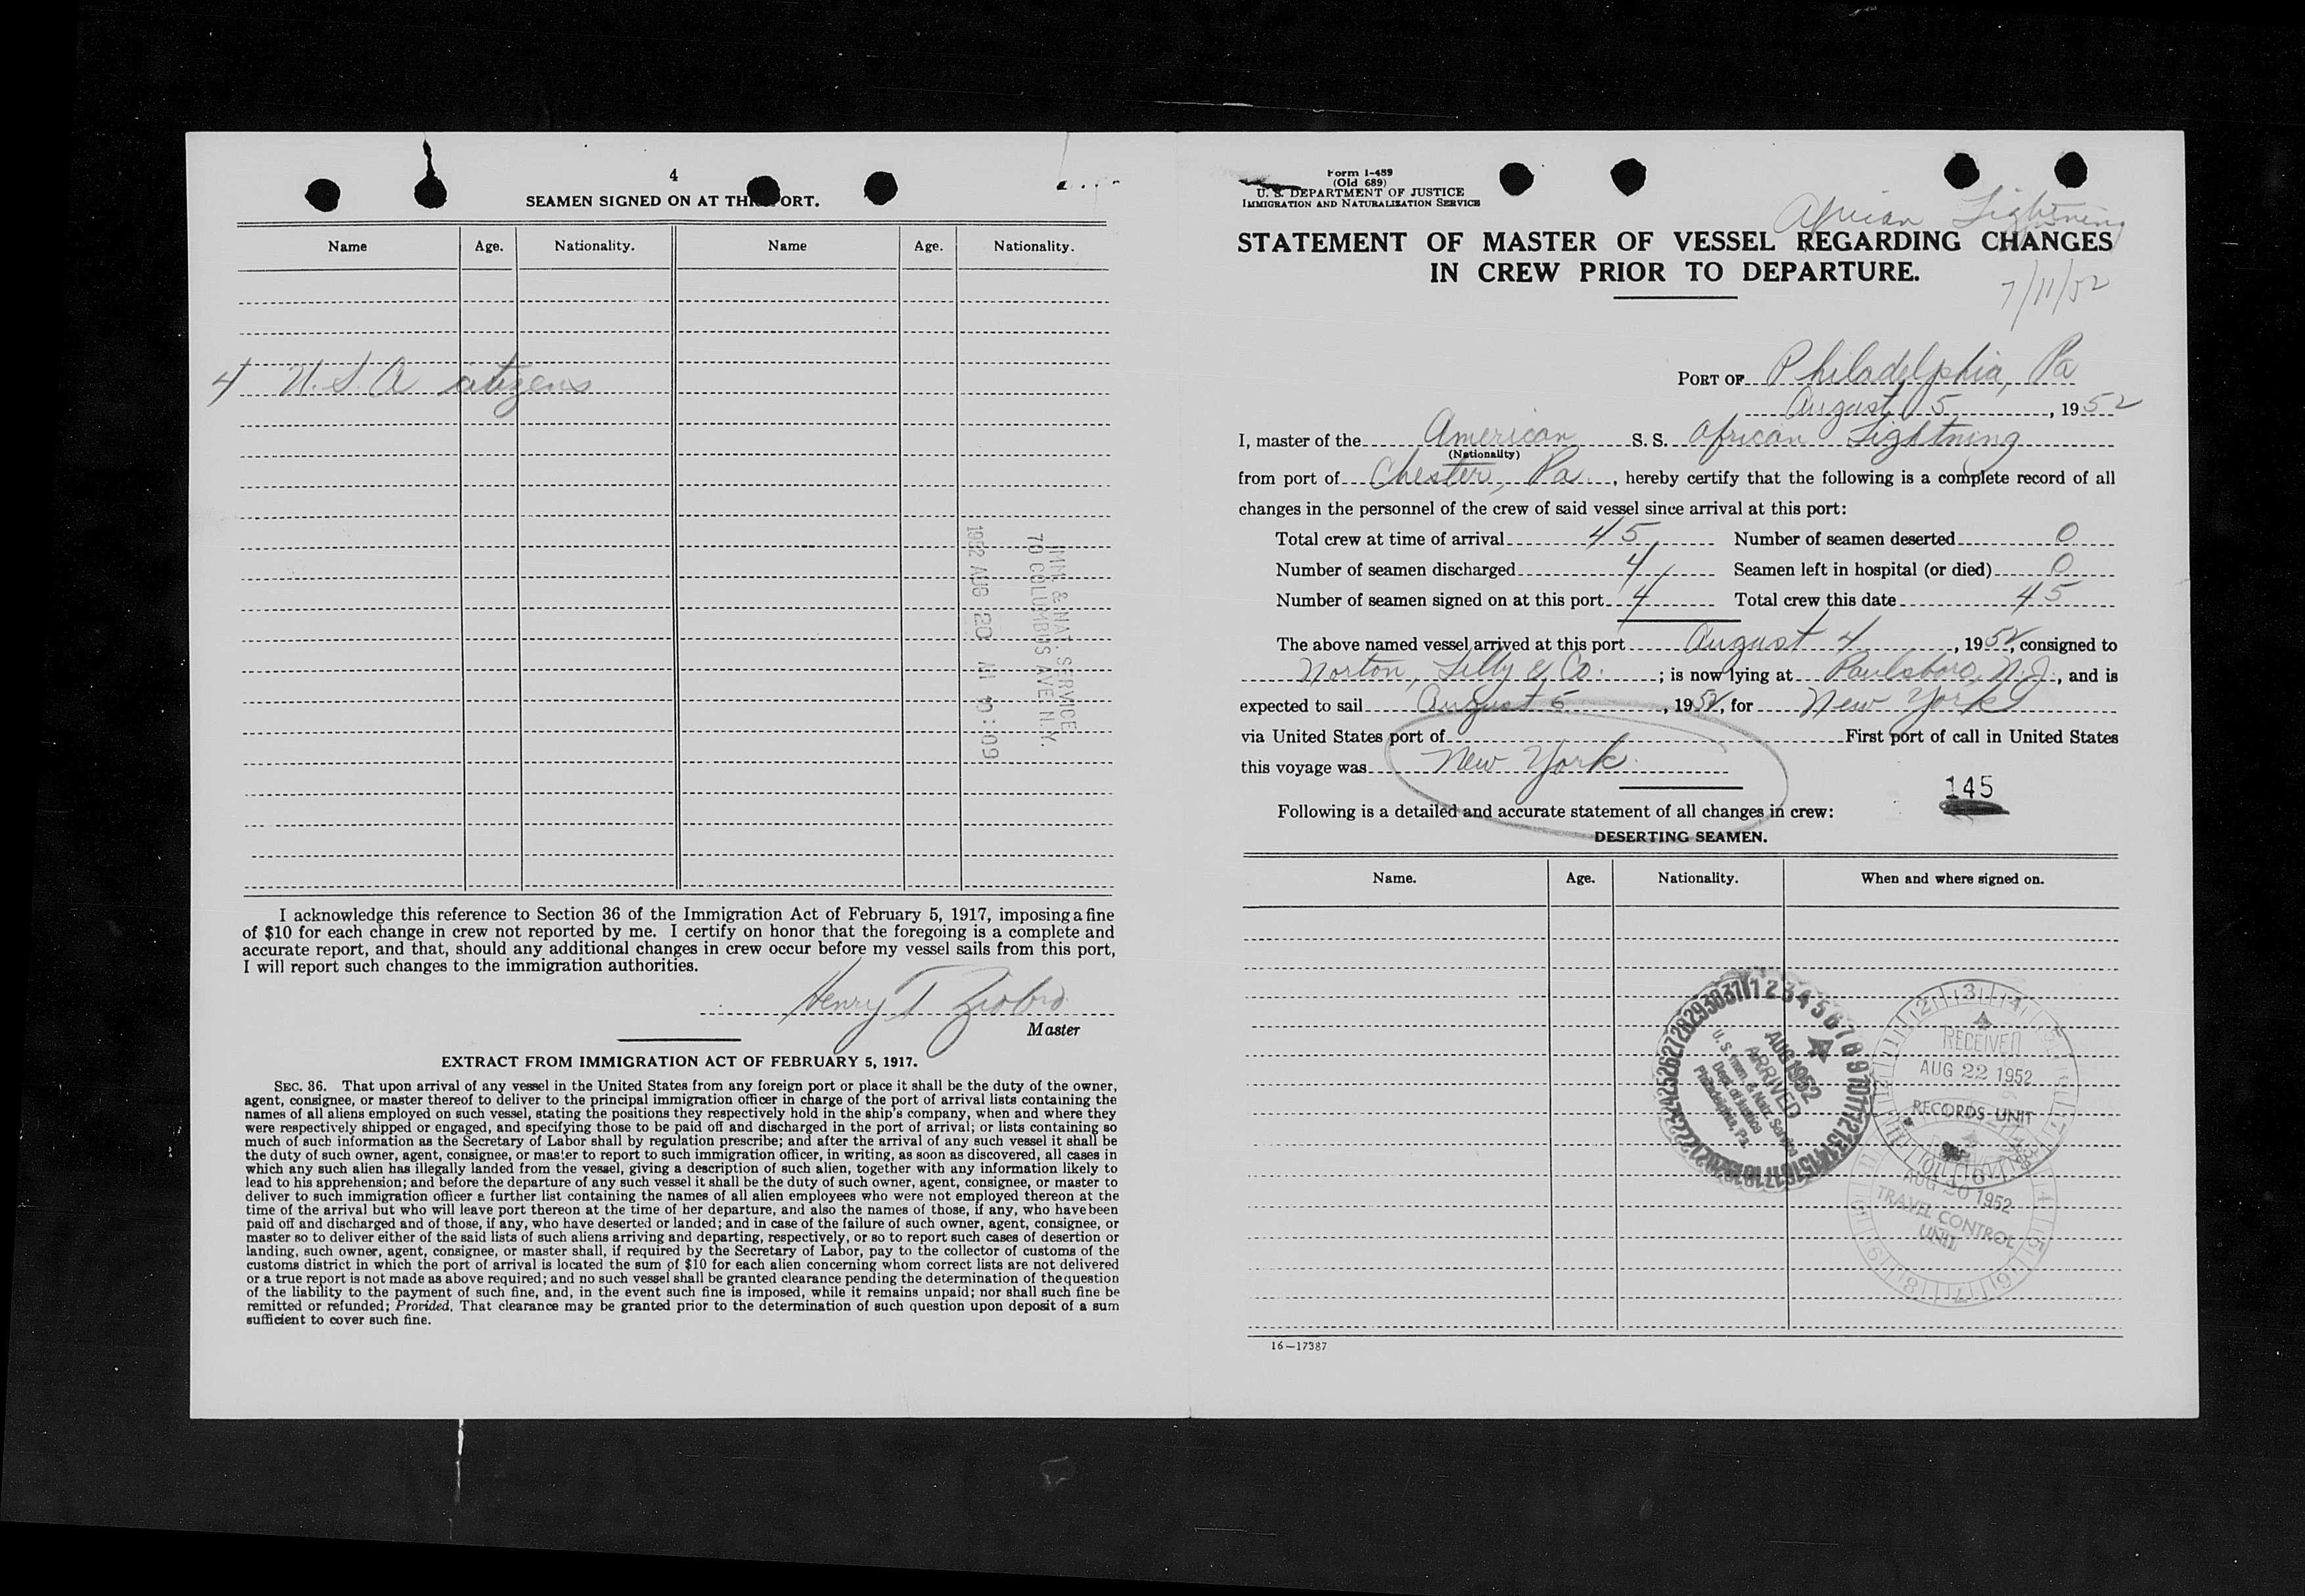 4
SEAMEN SIGNED ON AT THIS PORT.
Name Age. Nationality. Name Age. Nationality.
4 U.S.A citizens
IMM. & NAT. SERVICE
70 COLUMBUS AVE N.Y.
1952 AUG 20 AM 10:09
I acknowledge this reference to Section 36 of the Immigration Act of February 5, 1917, imposing a fine
of $10 for each change in crew not reported by me. I certify on honor that the foregoing is a complete and
accurate report, and that, should any additional changes in crew occur before my vessel sails from this port,
I will report such changes to the immigration authorities.
Henry T Ziobro
Master
EXTRACT FROM IMMIGRATION ACT OF FEBRUARY 5, 1917.
SEC. 36. That upon arrival of any vessel in the United States from any foreign port or place it shall be the duty of the owner,
agent, consignee, or master thereof to deliver to the principal immigration officer in charge of the port of arrival lists containing the
names of all aliens employed on such vessel, stating the positions they respectively hold in the ship's company, when and where they
were respectively shipped or engaged, and specifying those to be paid off and discharged in the port of arrival; or lists containing so
much of such information as the Secretary of Labor shall by regulation prescribe; and after the arrival of any such vessel it shall be
the duty of such owner, agent, consignee, or master to report to such immigration officer, in writing, as soon as discovered, all cases in
which any such alien has illegally landed from the vessel, giving a description of such alien, together with any information likely to
lead to his apprehension; and before the departure of any such vessel it shall be the duty of such owner, agent, consignee, or master to
deliver to such immigration officer a further list containing the names of all alien employees who were not employed thereon at the
time of the arrival but who will leave port thereon at the time of her departure, and also the names of those, if any, who have been
paid off and discharged and of those, if any, who have deserted or landed; and in case of the failure of such owner, agent, consignee, or
master so to deliver either of the said lists of such aliens arriving and departing, respectively, or so to report such cases of desertion or
landing, such owner, agent, consignee, or master shall, if required by the Secretary of Labor, pay to the collector of customs of the
customs district in which the port of arrival is located the sum of $10 for each alien concerning whom correct lists are not delivered
or a true report is not made as above required; and no such vessel shall be granted clearance pending the determination of the question
of the liability to the payment of such fine, and, in the event such fine is imposed, while it remains unpaid; nor shall such fine be
remitted or refunded; Provided, That clearance may be granted prior to the determination of such question upon deposit of a sum
sufficient to cover such fine.
Form I-489
(Old 689)
U. S. DEPARTMENT OF JUSTICE
IMMIGRATION AND NATURALIZATION SERVICE
African Lightning
STATEMENT OF MASTER OF VESSEL REGARDING CHANGES
IN CREW PRIOR TO DEPARTURE.
7/11/52
PORT OF Philadelphia, Pa
August 5, 1952
I, master of the American S. S. African Lightning
(Nationality)
from port of Chester, Pa., hereby certify that the following is a complete record of all
changes in the personnel of the crew of said vessel since arrival at this port:
Total crew at time of arrival 45 Number of seamen deserted 0
Number of seamen discharged 4 Seamen left in hospital (or died) 0
Number of seamen signed on at this port 4 Total crew this date 45
The above named vessel arrived at this port August 4, 1952, consigned to
Norton, Lilly & Co.; is now lying at Paulsboro, N.J., and is
expected to sail August 5, 1952, for New York
via United States port of First port of call in United States
this voyage was New York
145
Following is a detailed and accurate statement of all changes in crew:
DESERTING SEAMEN.
Name. Age. Nationality. When and where signed on.
AUG 1952
ARRIVED
U. S. Imm. & Natz. Service
Dept. of Justice
Philadelphia, Pa.
RECEIVED
AUG 22 1952
RECORDS UNIT
AUG 20 1952
TRAVEL CONTROL
UNIT
16—17387